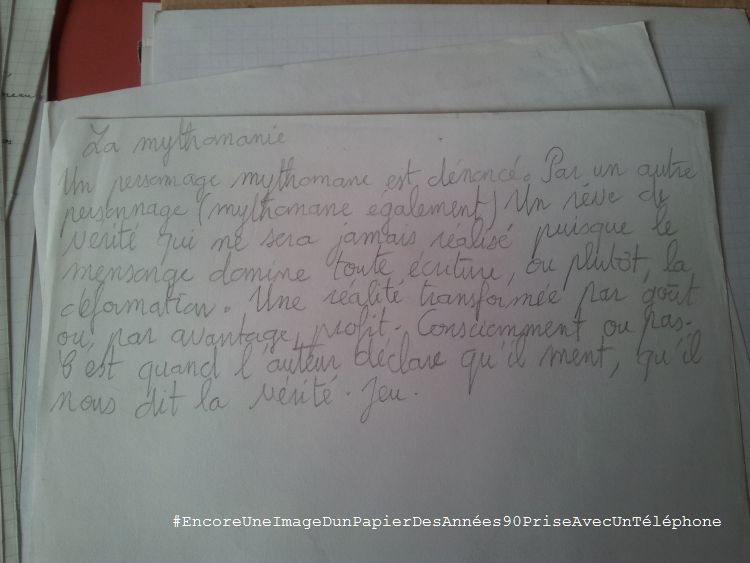 La mythomanie
Un personnage mythomane est dénoncé. Par un autre
personnage (mythomane également) Un rêve de
vérité qui ne sera jamais réalisé puisque le
mensonge domine toute écriture, ou plutôt, la
déformation. Une réalité transformée par goût
ou, par avantage, profit. Consciemment ou pas.
C'est quand l'auteur déclare qu'il ment, qu'il
nous dit la vérité. Jeu.
#EncoreUneImageDunPapierDesAnnées90PriseAvecUnTéléphone